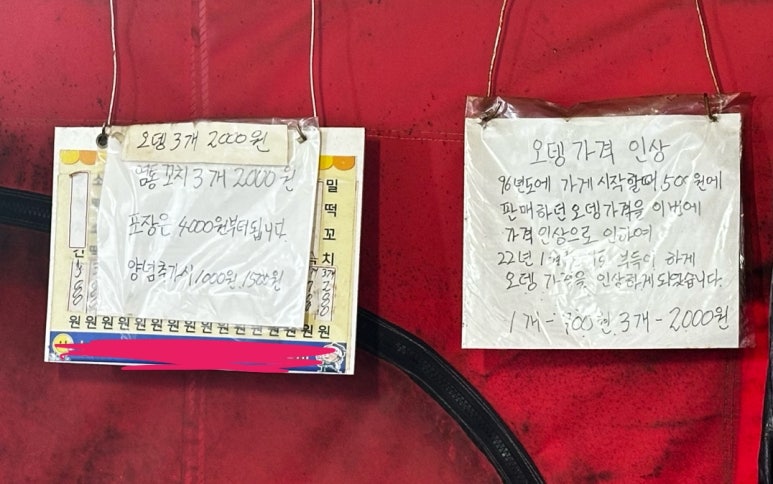 오뎅 3개 2000원
염통꼬치 3개 2000원
포장은 4000원부터됩니다.
양념추가시 1000원. 1500원
밀떡꼬치
원 원 원 원 원 원 원 원 원 원 원 원 원
오뎅가격 인상
96년도에 가게시작할때 500원에
판매하던 오뎅가격을 이번에
가격인상으로 인하여
22년 부득이 하게
오뎅 가격을 인상하게되었습니다.
1개 - 700원 3개 - 2000원